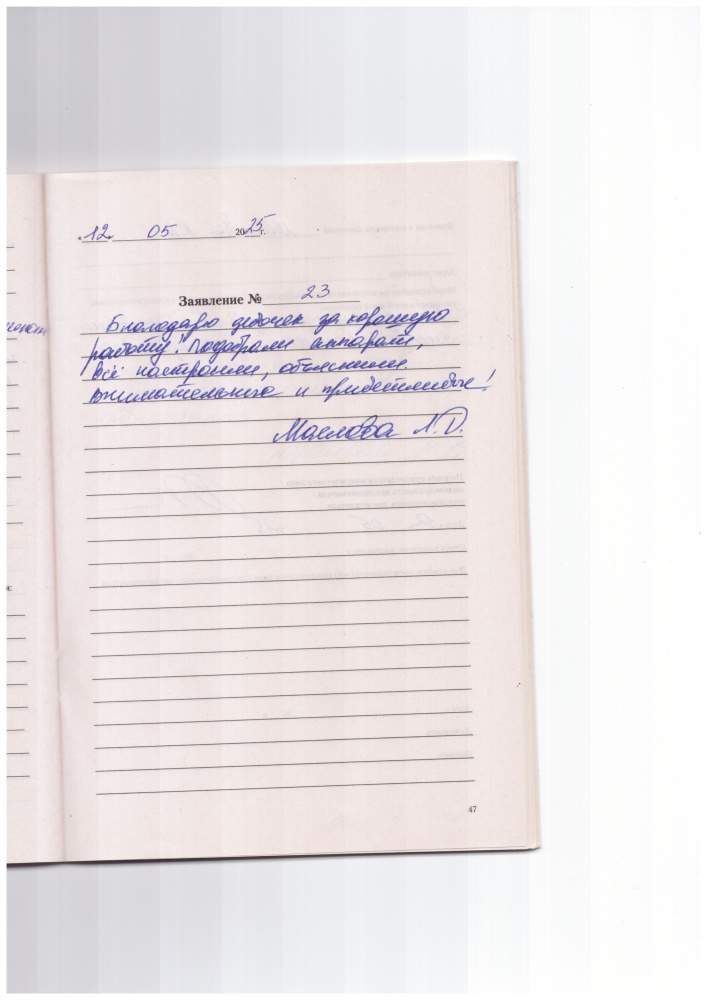 "12" 05 2025 г.
Заявление № 23
Благодарю девочек за хорошую
работу! Подобрали аппарат,
всё настроили, объяснили.
Внимательного и приветливые!
Маслова Л.D.
47